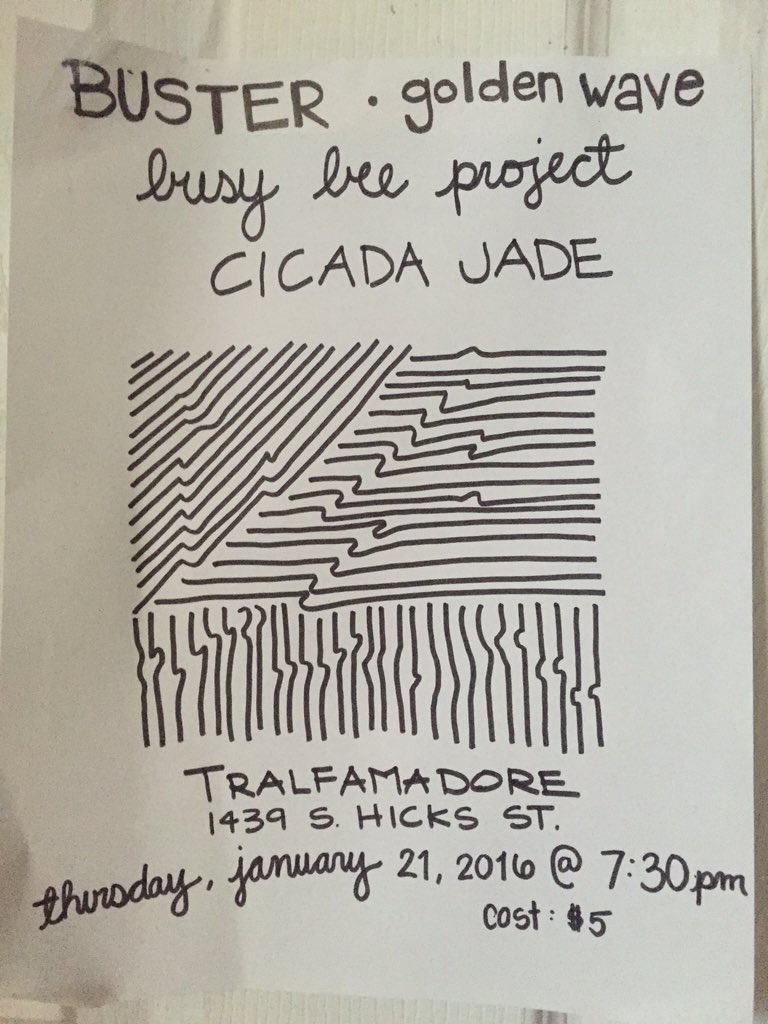 BUSTER · golden wave
busy bee project
CICADA JADE
TRALFAMADORE
1439 S. HICKS ST.
thursday, january 21, 2016 @ 7:30pm
cost: $5